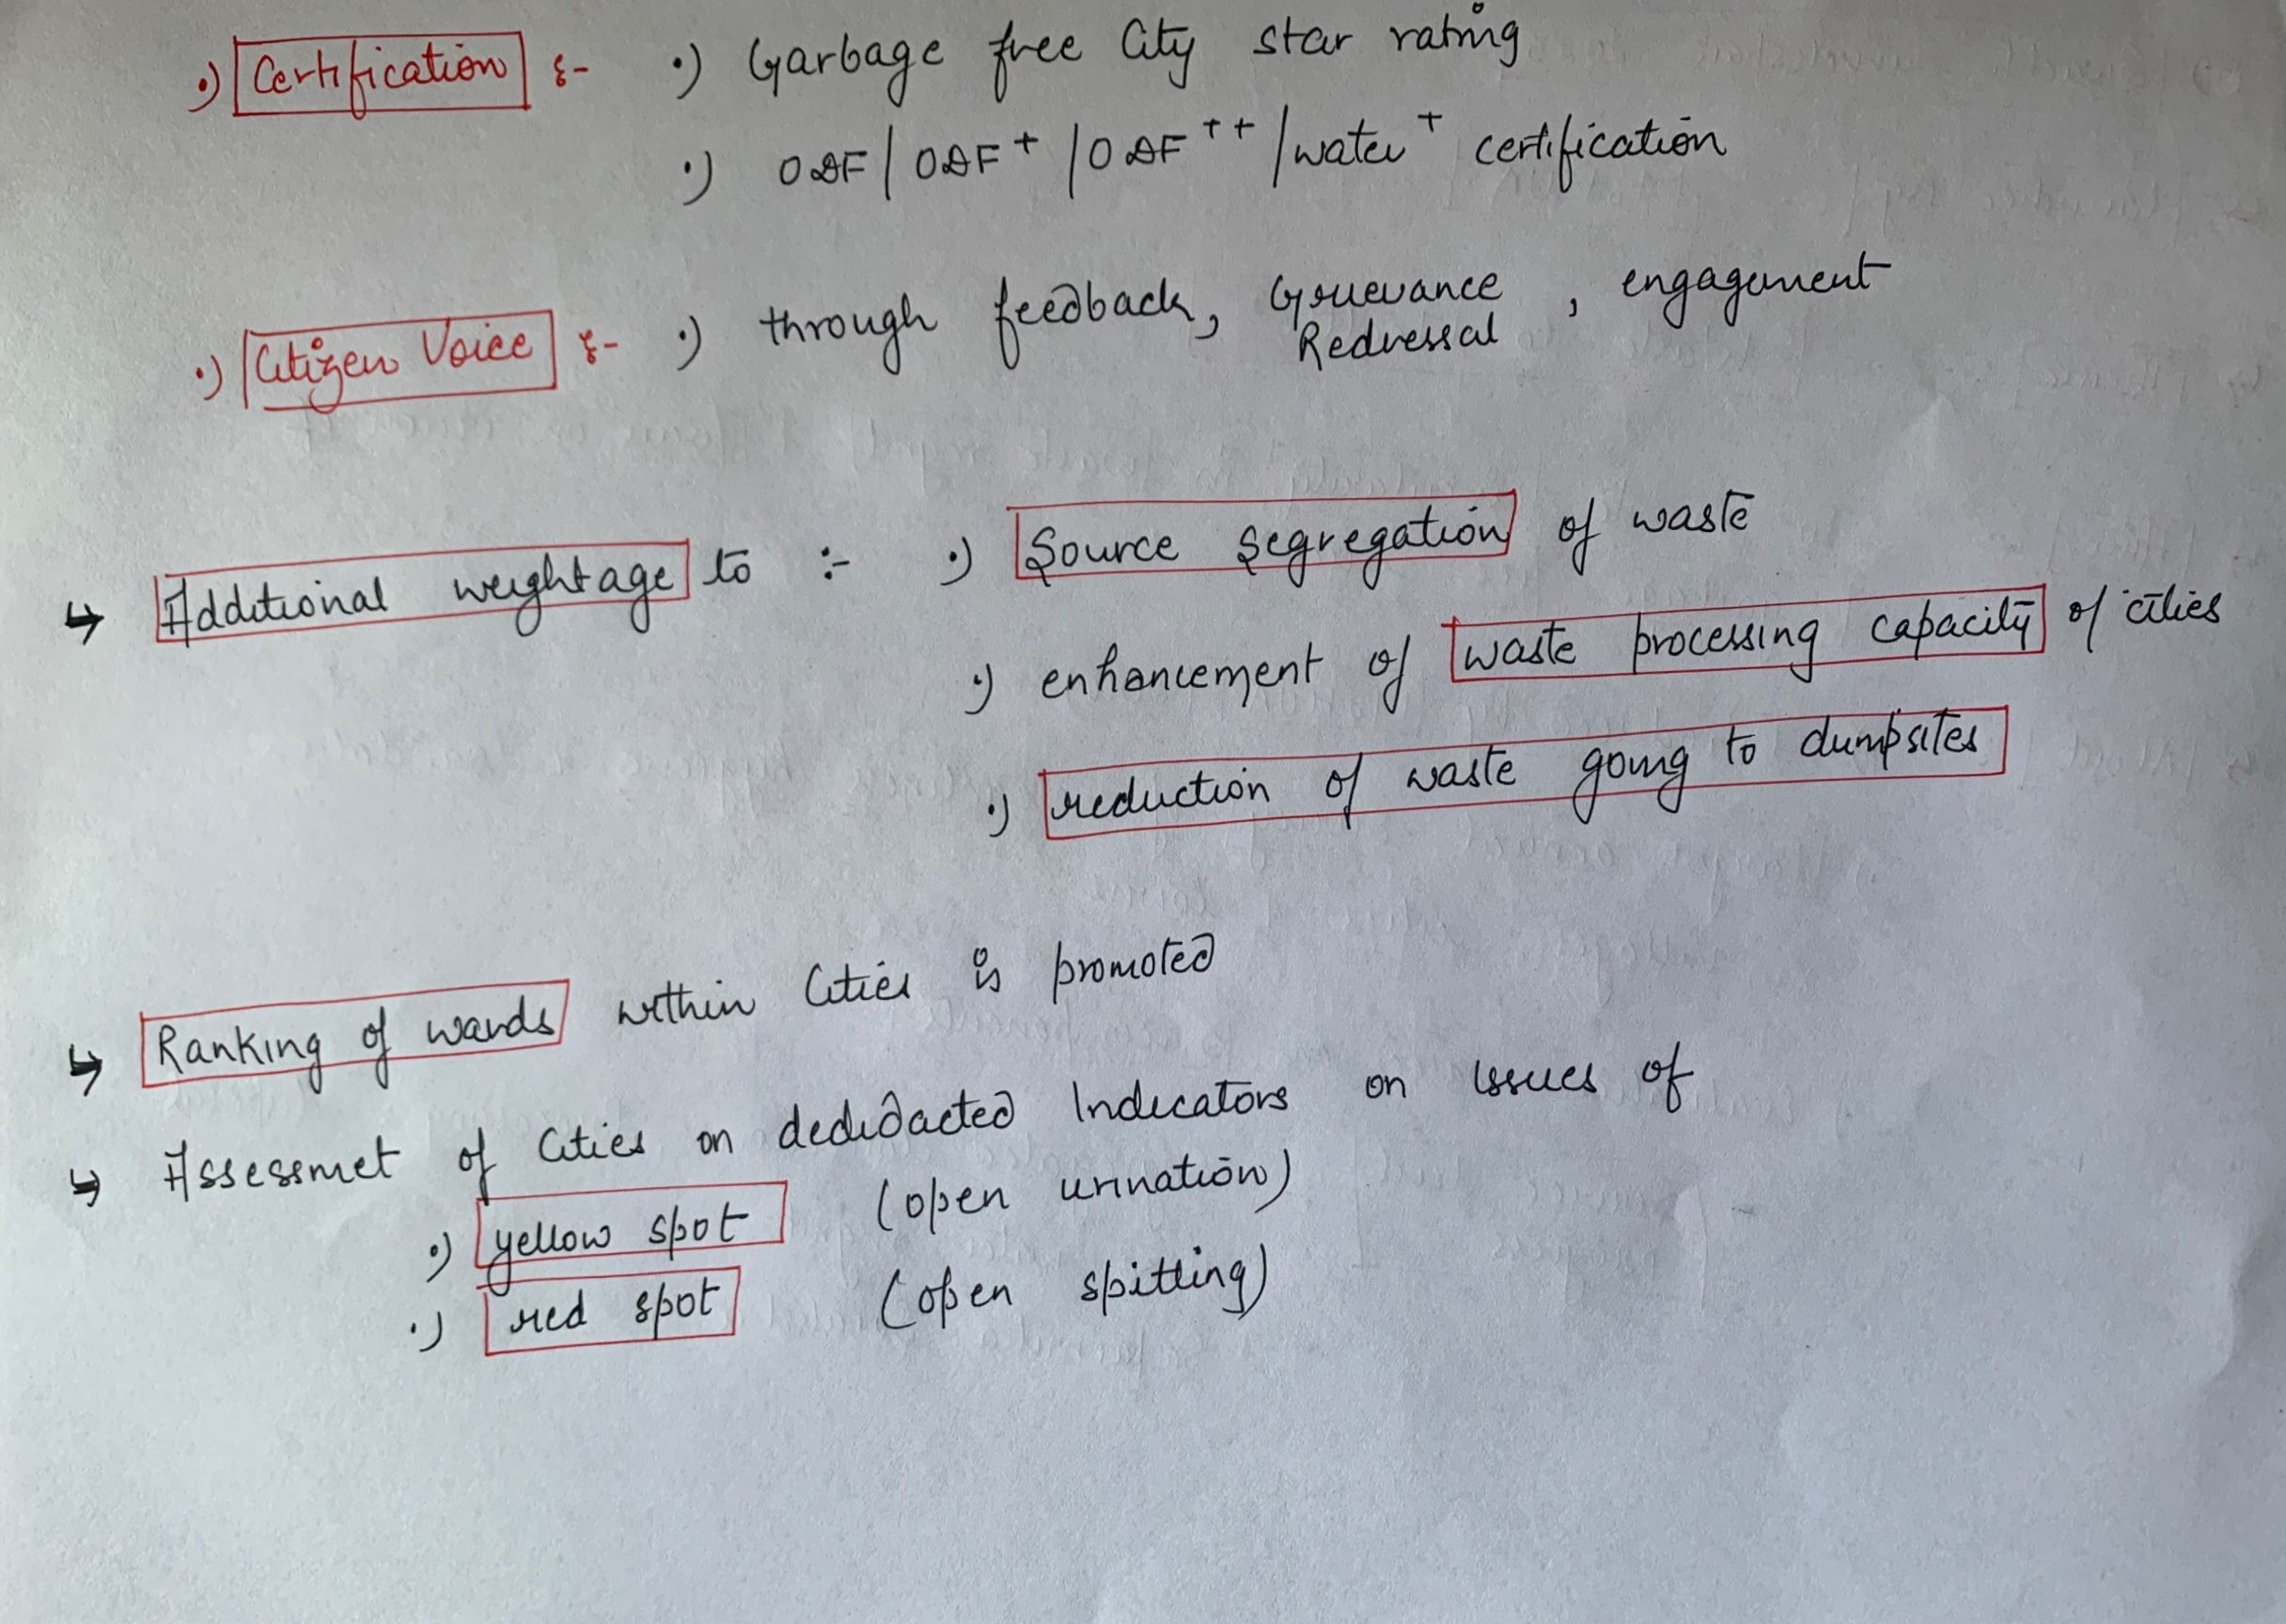 •) Certification :- •) Garbage free City star rating
•) ODF / ODF + / ODF ++ / water + certification
•) Citizen Voice :- •) through feedback, Grievance Redressal , engagement
↳ Additional weightage to :- •) Source segregation of waste
•) enhancement of waste processing capacity of cities
•) reduction of waste going to dumpsites
↳ Ranking of wards within Cities is promoted
↳ Assessmet of Cities on dedidacted Indicators on issues of
•) yellow spot (open urination)
•) red spot (open spitting)